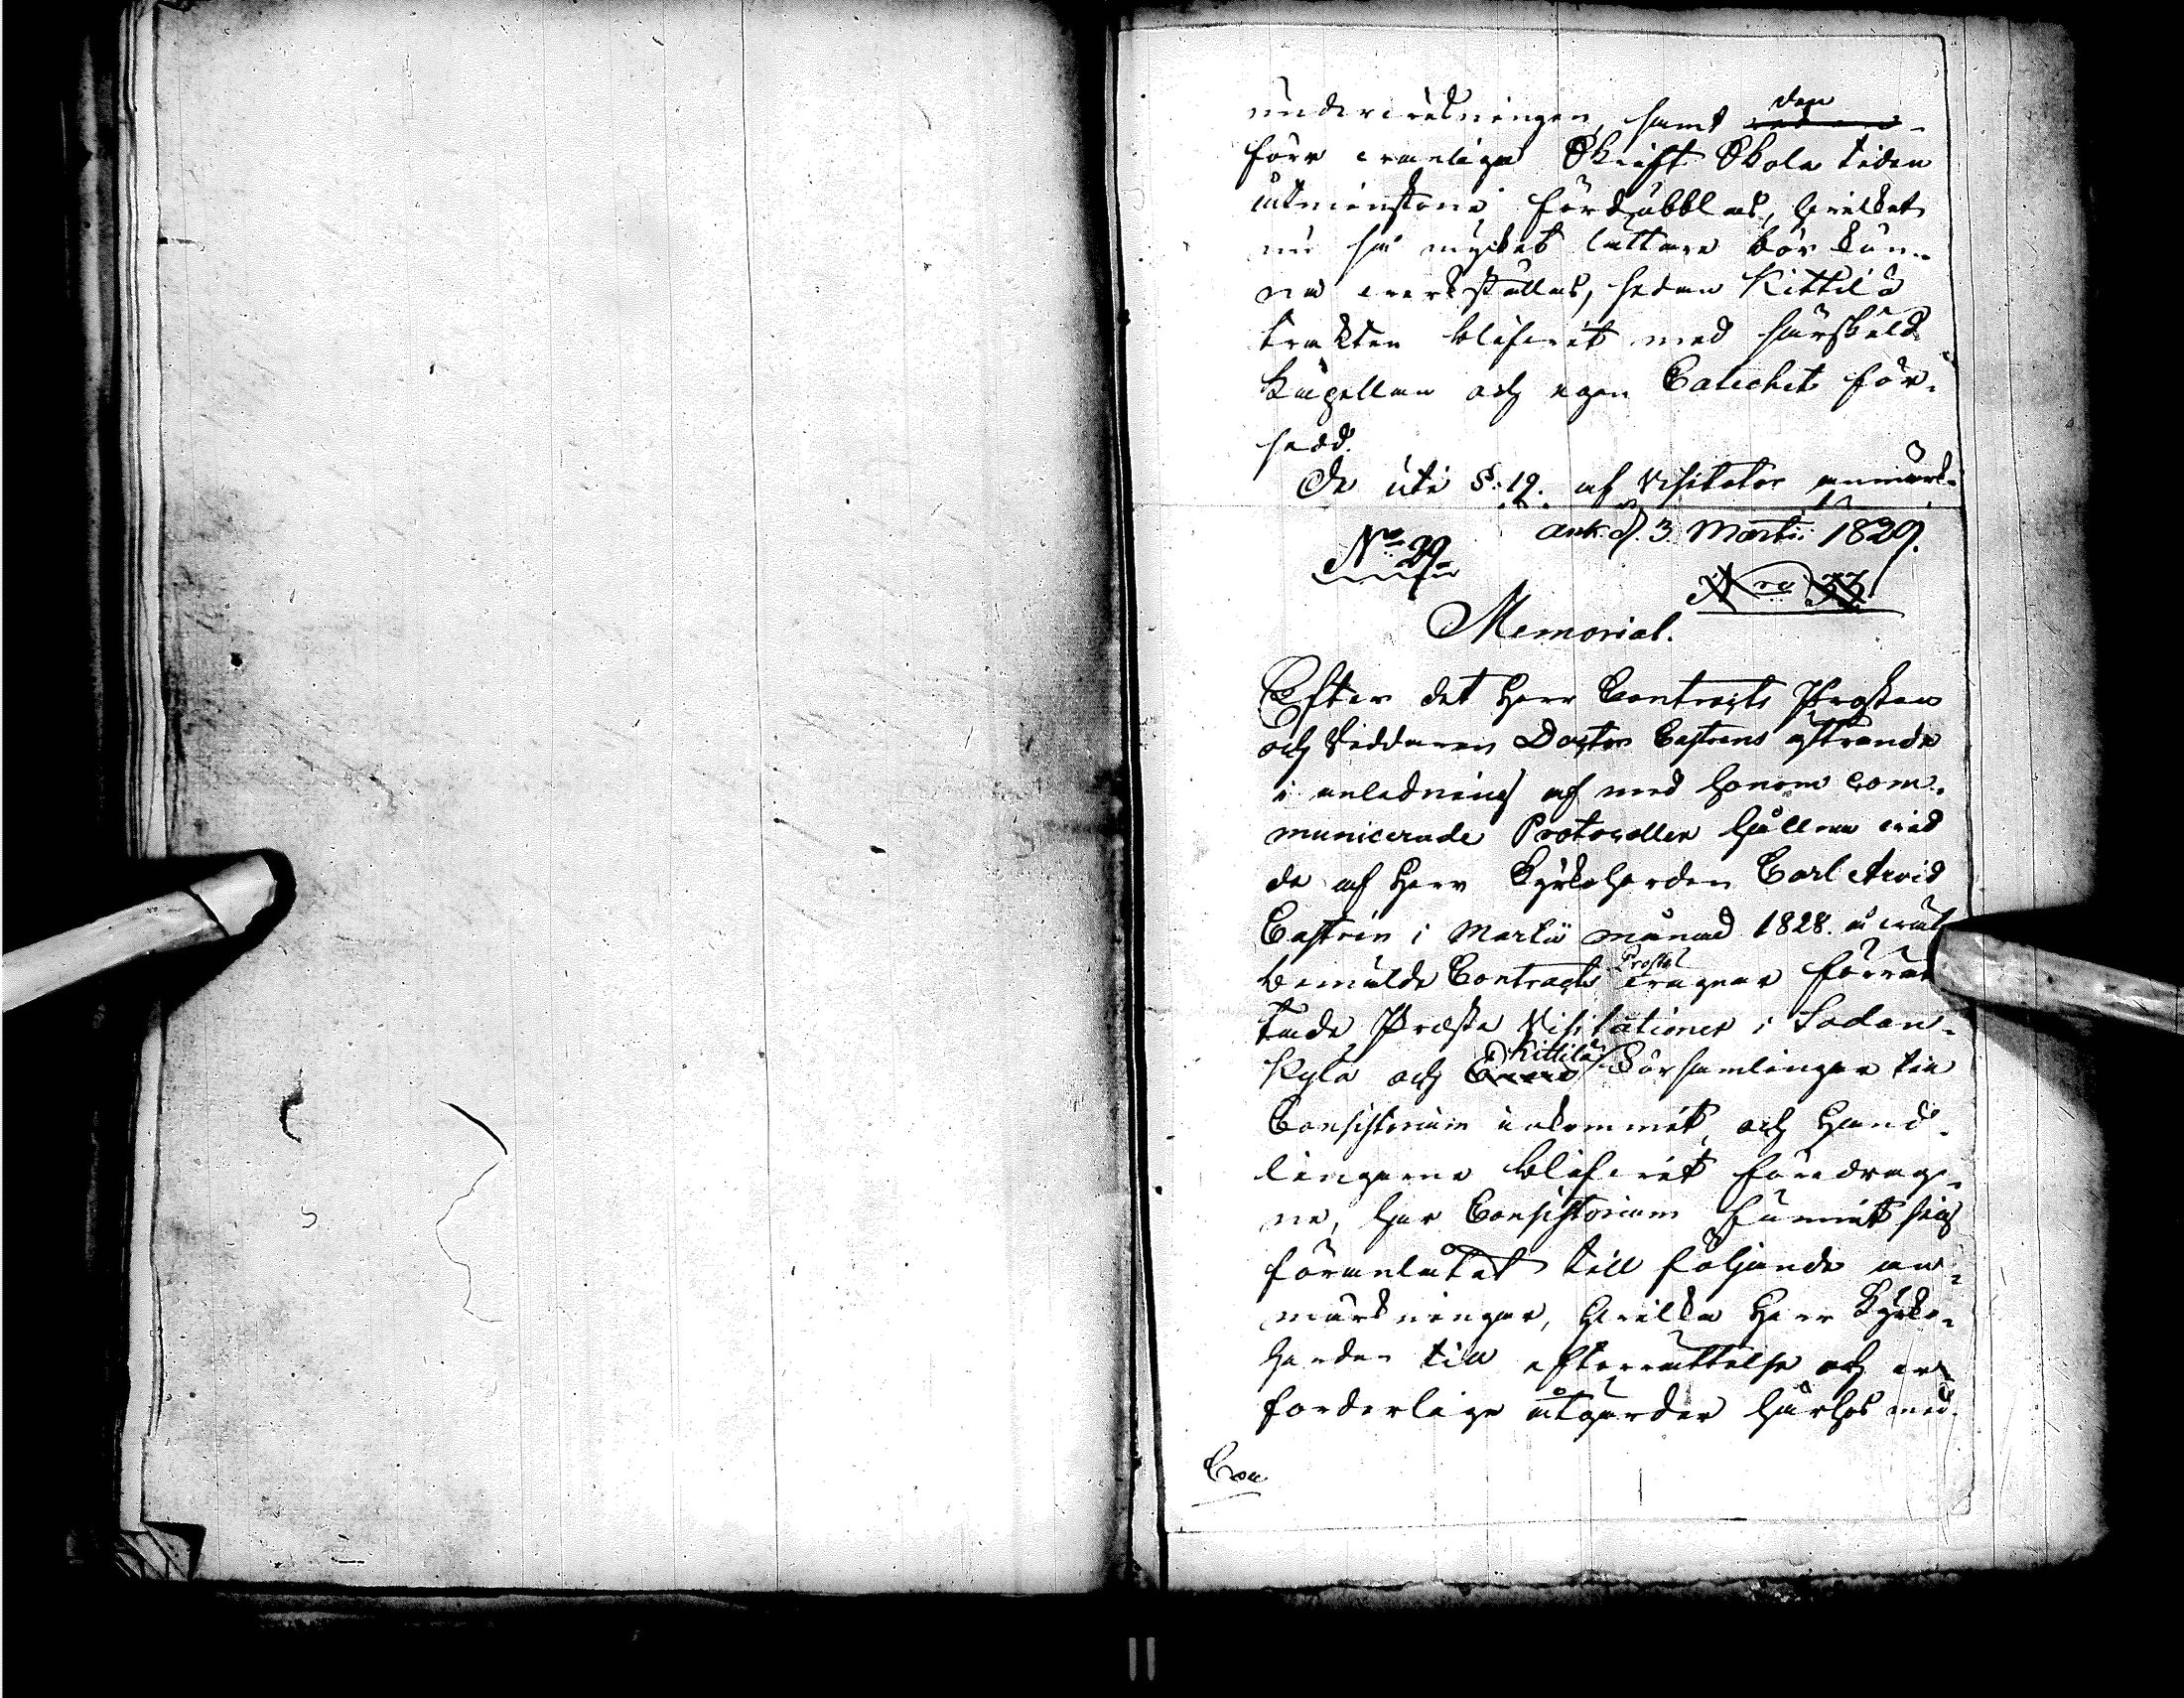 underwisningen, samt den
förr wanliga Skrift Skole tiden
åtminstone fördubblas, hwilket
nu så mycket lättare bör kun-
na werkställas, sedan Kittilä
trakten blifwit med särskild
Kapellan och egen Catechet för-
sedd.
De uti §. 19. af Visitator anmärk-
ank. d. 3. Martii 1829.
No 29
Memorial.
Efter det Herr Contracts Prosten
och Riddaren Doctor Castrens yttrande
i anledning af med honom com-
municerade Protocoller hållne wid
de af Herr Kyrkoherden Carl Arvid
Castrén i Martii månad 1828. å wäl
bemälde Contracts Prostes wägnar förrät
tade Prosta Visitationer i Sodan-
kylä och Kittilä Församlingar till
Consistorium inkommit, och Hand-
lingarne blifwit föredrag-
ne, har Consistorium funnit sig
föranlåtet till följande an-
märkningar, hwilka Herr Kyrko-
herden till efterrättelse och er-
forderlige åtgärder härhos med-